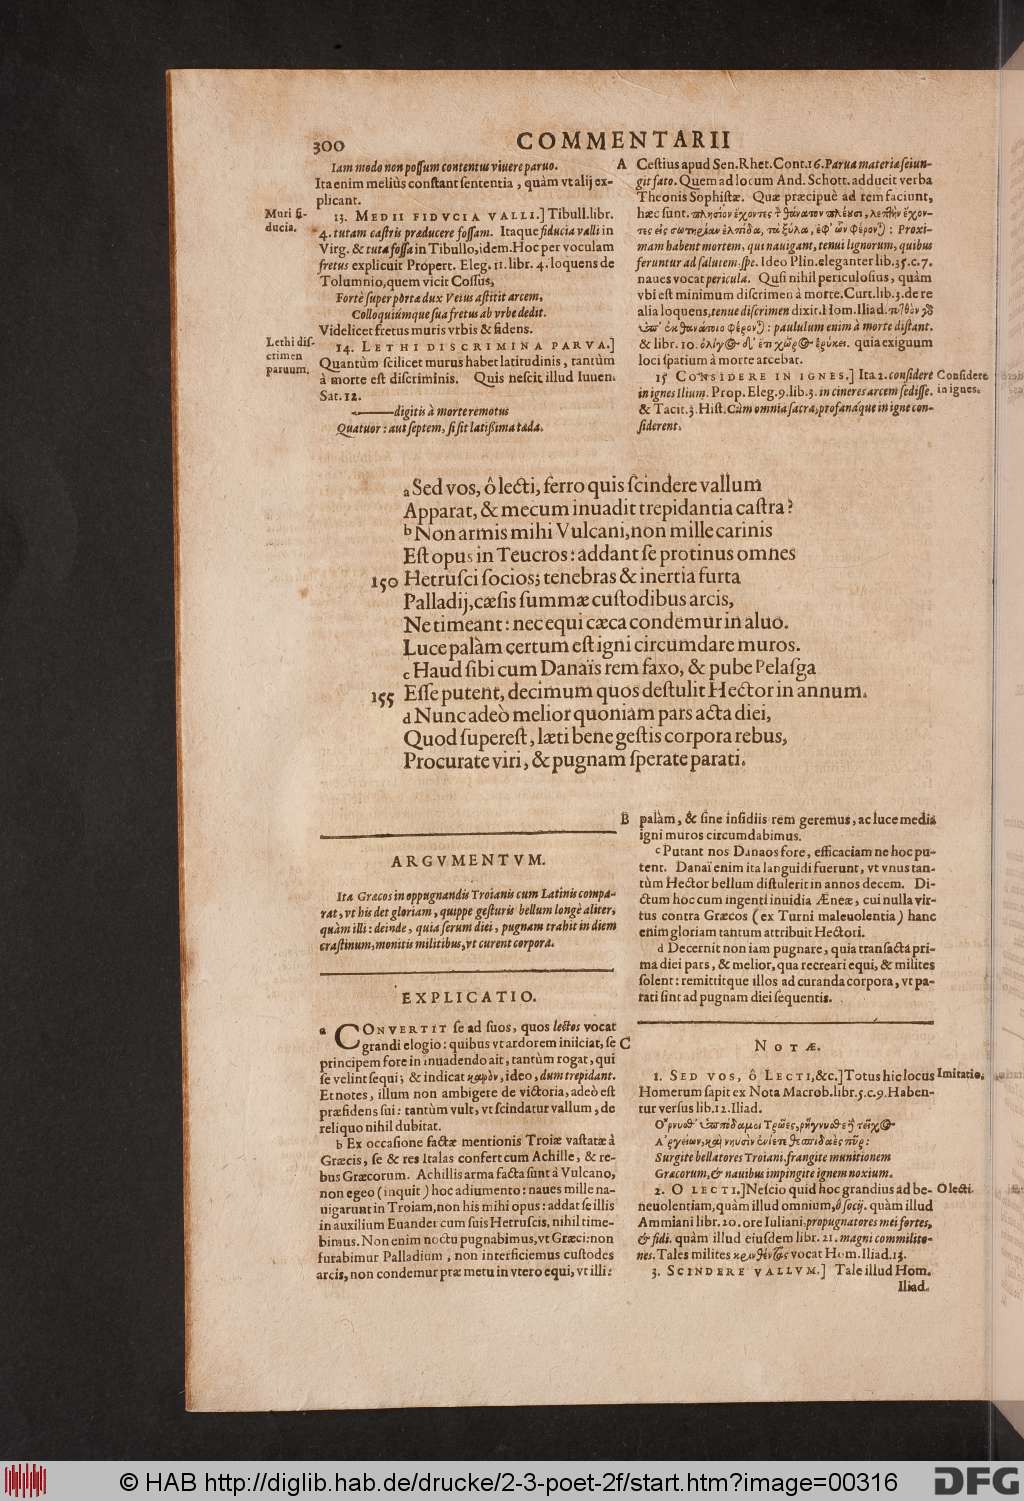 300
COMMENTARII
Iam modo non possum contentus viuere paruo.
Ita enim meliùs constant sententia, quàm vt alij ex-
plicant.
Muri fi-
ducia.
13. MEDII FIDVCIA VALLI.] Tibull. libr.
4. tutam castris præducere fossam. Itaque fiducia valli in
Virg. & tuta fossa in Tibullo, idem. Hoc per voculam
fretus explicuit Propert. Eleg. 11. libr. 4. loquens de
Tolumnio, quem vicit Cossus,
Fortè super portæ dux Veius astitit arcem,
Colloquiúmque sua fretus ab vrbe dedit.
Videlicet fretus muris vrbis & fidens.
Lethi dis-
crimen
paruum.
14. LETHI DISCRIMINA PARVA.]
Quantùm scilicet murus habet latitudinis, tantùm
à morte est discriminis. Quis nescit illud Iuuen.
Sat. 12.
———digitis à morte remotus
Quatuor: aut septem, si sit latißima tæda.
A
Cestius apud Sen. Rhet. Cont. 16. Parua materia seiun-
git fato. Quem ad locum And. Schott. adducit verba
Theonis Sophistæ. Quæ præcipuè ad rem faciunt,
hæc sunt. πλησίον ἔχοντες τ̀ θάνατον πλέουσι, λεπτὴν ἔχον-
τες εἰς σωτηρίαν ἐλπίδα, τὰ ξύλα, ἐφ' ὧν φέρον): Proxi-
mam habent mortem, qui nauigant, tenui lignorum, quibus
feruntur ad salutem, spe. Ideo Plin. eleganter lib. 35. c. 7.
naues vocat pericula. Qusi nihil periculosius, quàm
vbi est minimum discrimen à morte. Curt. lib. 3. de re
alia loquens, tenue discrimen dixit. Hom. Iliad. τυτθὸν γδ
ὑπ' ἐκ θανάτοιο φέρον): paululum enim à morte distant.
& libr. 10. ὀλίγος δ' ἐπὶ χῶρος ἐρύκει. quia exiguum
loci spatium à morte arcebat.
15 CONSIDERE IN IGNES.] Ita 2. considere
in ignes Ilium. Prop. Eleg. 9. lib. 3. in cineres arcem sedisse.
& Tacit. 3. Hist. Cùm omnia sacra, profanáque in igne con-
siderent.
Considere
in ignes.
a Sed vos, ô lecti, ferro quis scindere vallum
Apparat, & mecum inuadit trepidantia castra?
b Non armis mihi Vulcani, non mille carinis
Est opus in Teucros: addant se protinus omnes
150 Hetrusci socios; tenebras & inertia furta
Palladij, cæsis summæ custodibus arcis,
Ne timeant: nec equi cæca condemur in aluo.
Luce palàm certum est igni circumdare muros.
c Haud sibi cum Danaïs rem faxo, & pube Pelasga
155 Esse putent, decimum quos destulit Hector in annum.
d Nunc adeò melior quoniam pars acta diei,
Quod superest, læti bene gestis corpora rebus,
Procurate viri, & pugnam sperate parati.
ARGVMENTVM.
Ita Græcos in oppugnandis Troianis cum Latinis compa-
rat, vt his det gloriam, quippe gesturis bellum longè aliter,
quàm illi: deinde, quia serum diei, pugnam trahit in diem
crastinum, monitis militibus, vt curent corpora.
EXPLICATIO.
a CONVERTIT se ad suos, quos lectos vocat
grandi elogio: quibus vt ardorem iniiciat, se
principem fore in inuadendo ait, tantùm rogat, qui
se velint sequi; & indicat καιρὸν, ideo, dum trepidant.
Et notes, illum non ambigere de victoria, adeò est
præfidens sui: tantùm vult, vt scindatur vallum, de
reliquo nihil dubitat.
b Ex occasione factæ mentionis Troiæ vastatæ à
Græcis, se & res Italas confert cum Achille, & re-
bus Græcorum. Achillis arma facta sunt à Vulcano,
non egeo (inquit) hoc adiumento: naues mille na-
uigarunt in Troiam, non his mihi opus: addat se illis
in auxilium Euander cum suis Hetruscis, nihil time-
bimus. Non enim noctu pugnabimus, vt Græci: non
furabimur Palladium, non interficiemus custodes
arcis, non condemur præ metu in vtero equi, vt illi:
B
palàm, & sine insidiis rem geremus, ac luce media
igni muros circumdabimus.
c Putant nos Danaos fore, efficaciam ne hoc pu-
tent. Danaï enim ita languidi fuerunt, vt vnus tan-
tùm Hector bellum distulerit in annos decem. Di-
ctum hoc cum ingenti inuidia Æneæ, cui nulla vir-
tus contra Græcos (ex Turni maleuolentia) hanc
enim gloriam tantum attribuit Hectori.
d Decernit non iam pugnare, quia transacta pri-
ma diei pars, & melior, qua recreari equi, & milites
solent: remittitque illos ad curanda corpora, vt pa-
rati sint ad pugnam diei sequentis.
C
NOTÆ.
1. SED VOS, ô LECTI, &c.] Totus hic locus
Homerum sapit ex Nota Macrob. libr. 5. c. 9. Haben-
tur versus lib. 12. Iliad.
Imitatio.
Ὄρνυσθ' ἱππόδαμοι Τρῶες, ῥήγνυσθε ἢ τεῖχος
Ἀργείων, καὶ νηυσὶν ἐνίετε θεσπιδαὲς πῦρ:
Surgite bellatores Troiani, frangite munitionem
Græcorum, & nauibus impingite ignem noxium.
2. O LECTI.] Nescio quid hoc grandius ad be-
neuolentiam, quàm illud omnium, ô socij. quàm illud
Ammiani libr. 20. ore Iuliani. propugnatores mei fortes,
& fidi. quàm illud eiusdem libr. 21. magni commilito-
nes. Tales milites κρινθέντας vocat Hom. Iliad. 13.
O lecti.
3. SCINDERE VALLVM.] Tale illud Hom.
Iliad.
© HAB http://diglib.hab.de/drucke/2-3-poet-2f/start.htm?image=00316
DFG